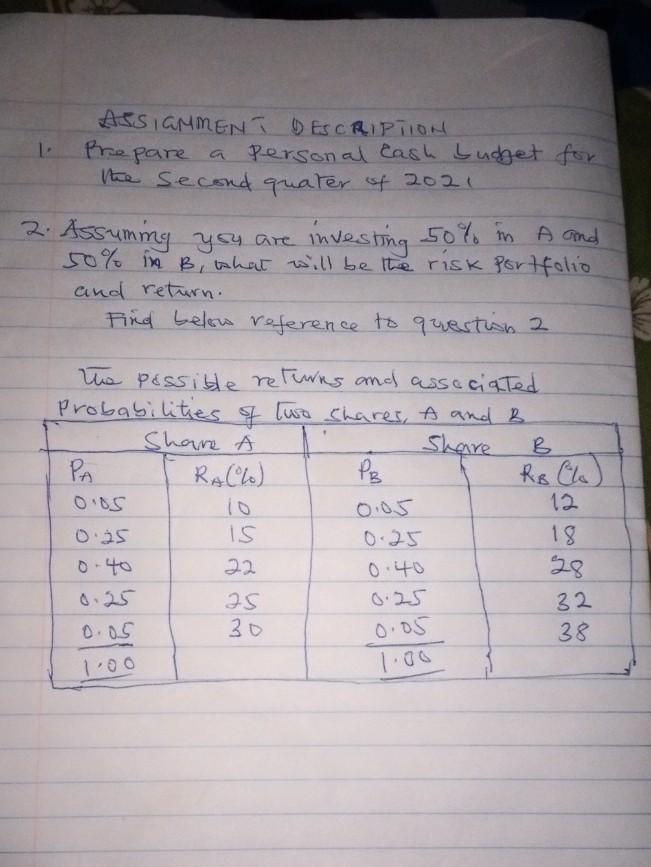 ASSIGNMENT DESCRIPTIION
1. Prepare a Personal Cash budget for
the Second quater of 2021
2. Assuming you are investing 50% in A and
50% in B, what will be the risk Portfolio
and return.
Find below reference to question 2
The possible returns and associated
Probabilities of two shares, A and B
Share A Share B
PA RA(%) PB RB (%)
0.05 10 0.05 12
0.25 15 0.25 18
0.40 22 0.40 28
0.25 25 0.25 32
0.05 30 0.05 38
1.00 1.00